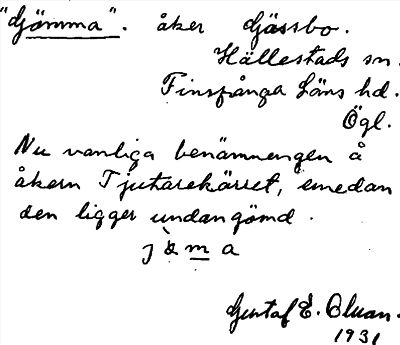 "Gömma". åker Gässbo.
Hällestads sn.
Finspånga Läns hd.
Ögl.
Nu vanliga benämnengen å
åkern Tjutarekärret, emedan
den ligger undangömd.
Gustaf E. Olsson.
1931